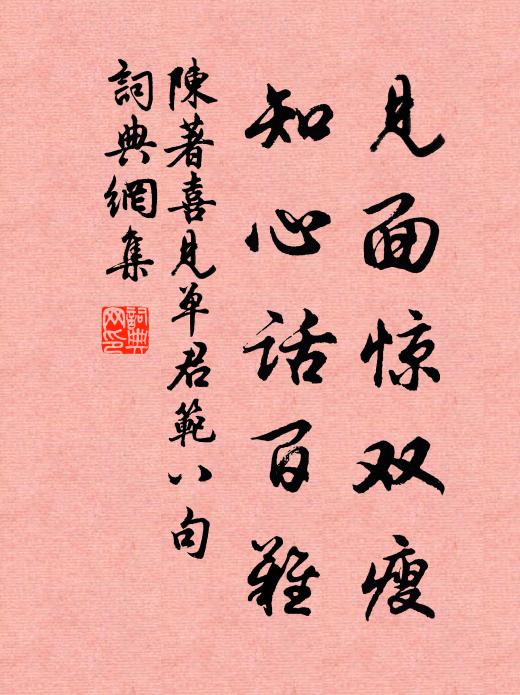 见面惊双瘦
知心话百難
陳著喜见单君範八句
詞典網集
詞典
网印